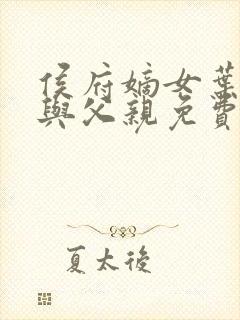 侯府嫡女葉
與父親免費
夏太後